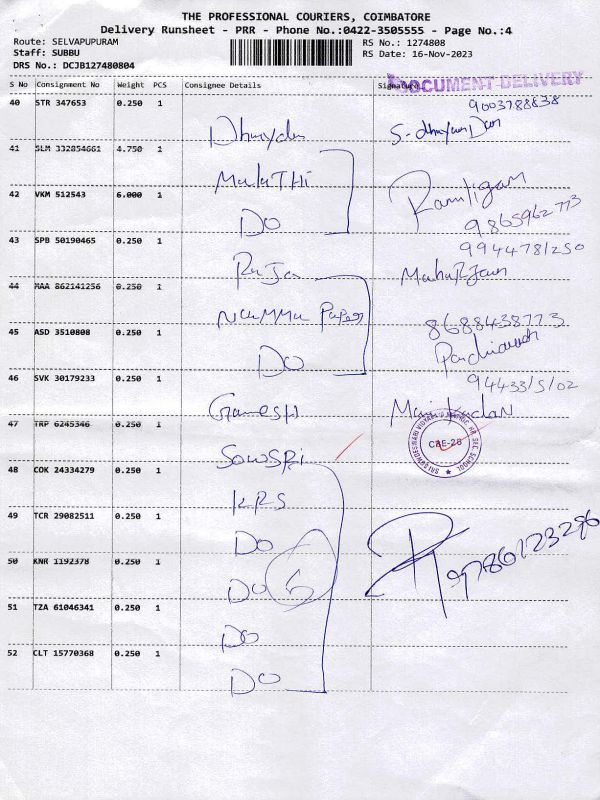 THE PROFESSIONAL COURIERS, COIMBATORE
Delivery Runsheet - PRR - Phone No.:0422-3505555 - Page No.:4
Route: SELVAPUPURAM
RS No.: 1274808
Staff: SUBBU
RS Date: 16-Nov-2023
DRS No.: DCJB127480804
DOCUMENT DELIVERY
S No Consignment No Weight PCS Consignee Details Signature
9003788838
40 STR 347653 0.250 1
41 SLM 332854661 4.750 1
MaLaTHi
42 VKM 512543 6.000 1
DO
9865962773
43 SPB 50190465 0.250 1
9944781250
RaJa
44 MAA 862141256 0.250 1
NaMMa Paper
8688438773
45 ASD 3510808 0.250 1
DO
46 SVK 30179233 0.250 1
94433/5/02
GaneSH
Manikandan
47 TRP 6245346 0.250 1
SowSRi
CBE-26
48 COK 24334279 0.250 1
KRS
49 TCR 29082511 0.250 1
DO
9786123286
50 KNR 1192378 0.250 1
DO 6
51 TZA 61046341 0.250 1
DO
52 CLT 15770368 0.250 1
DO